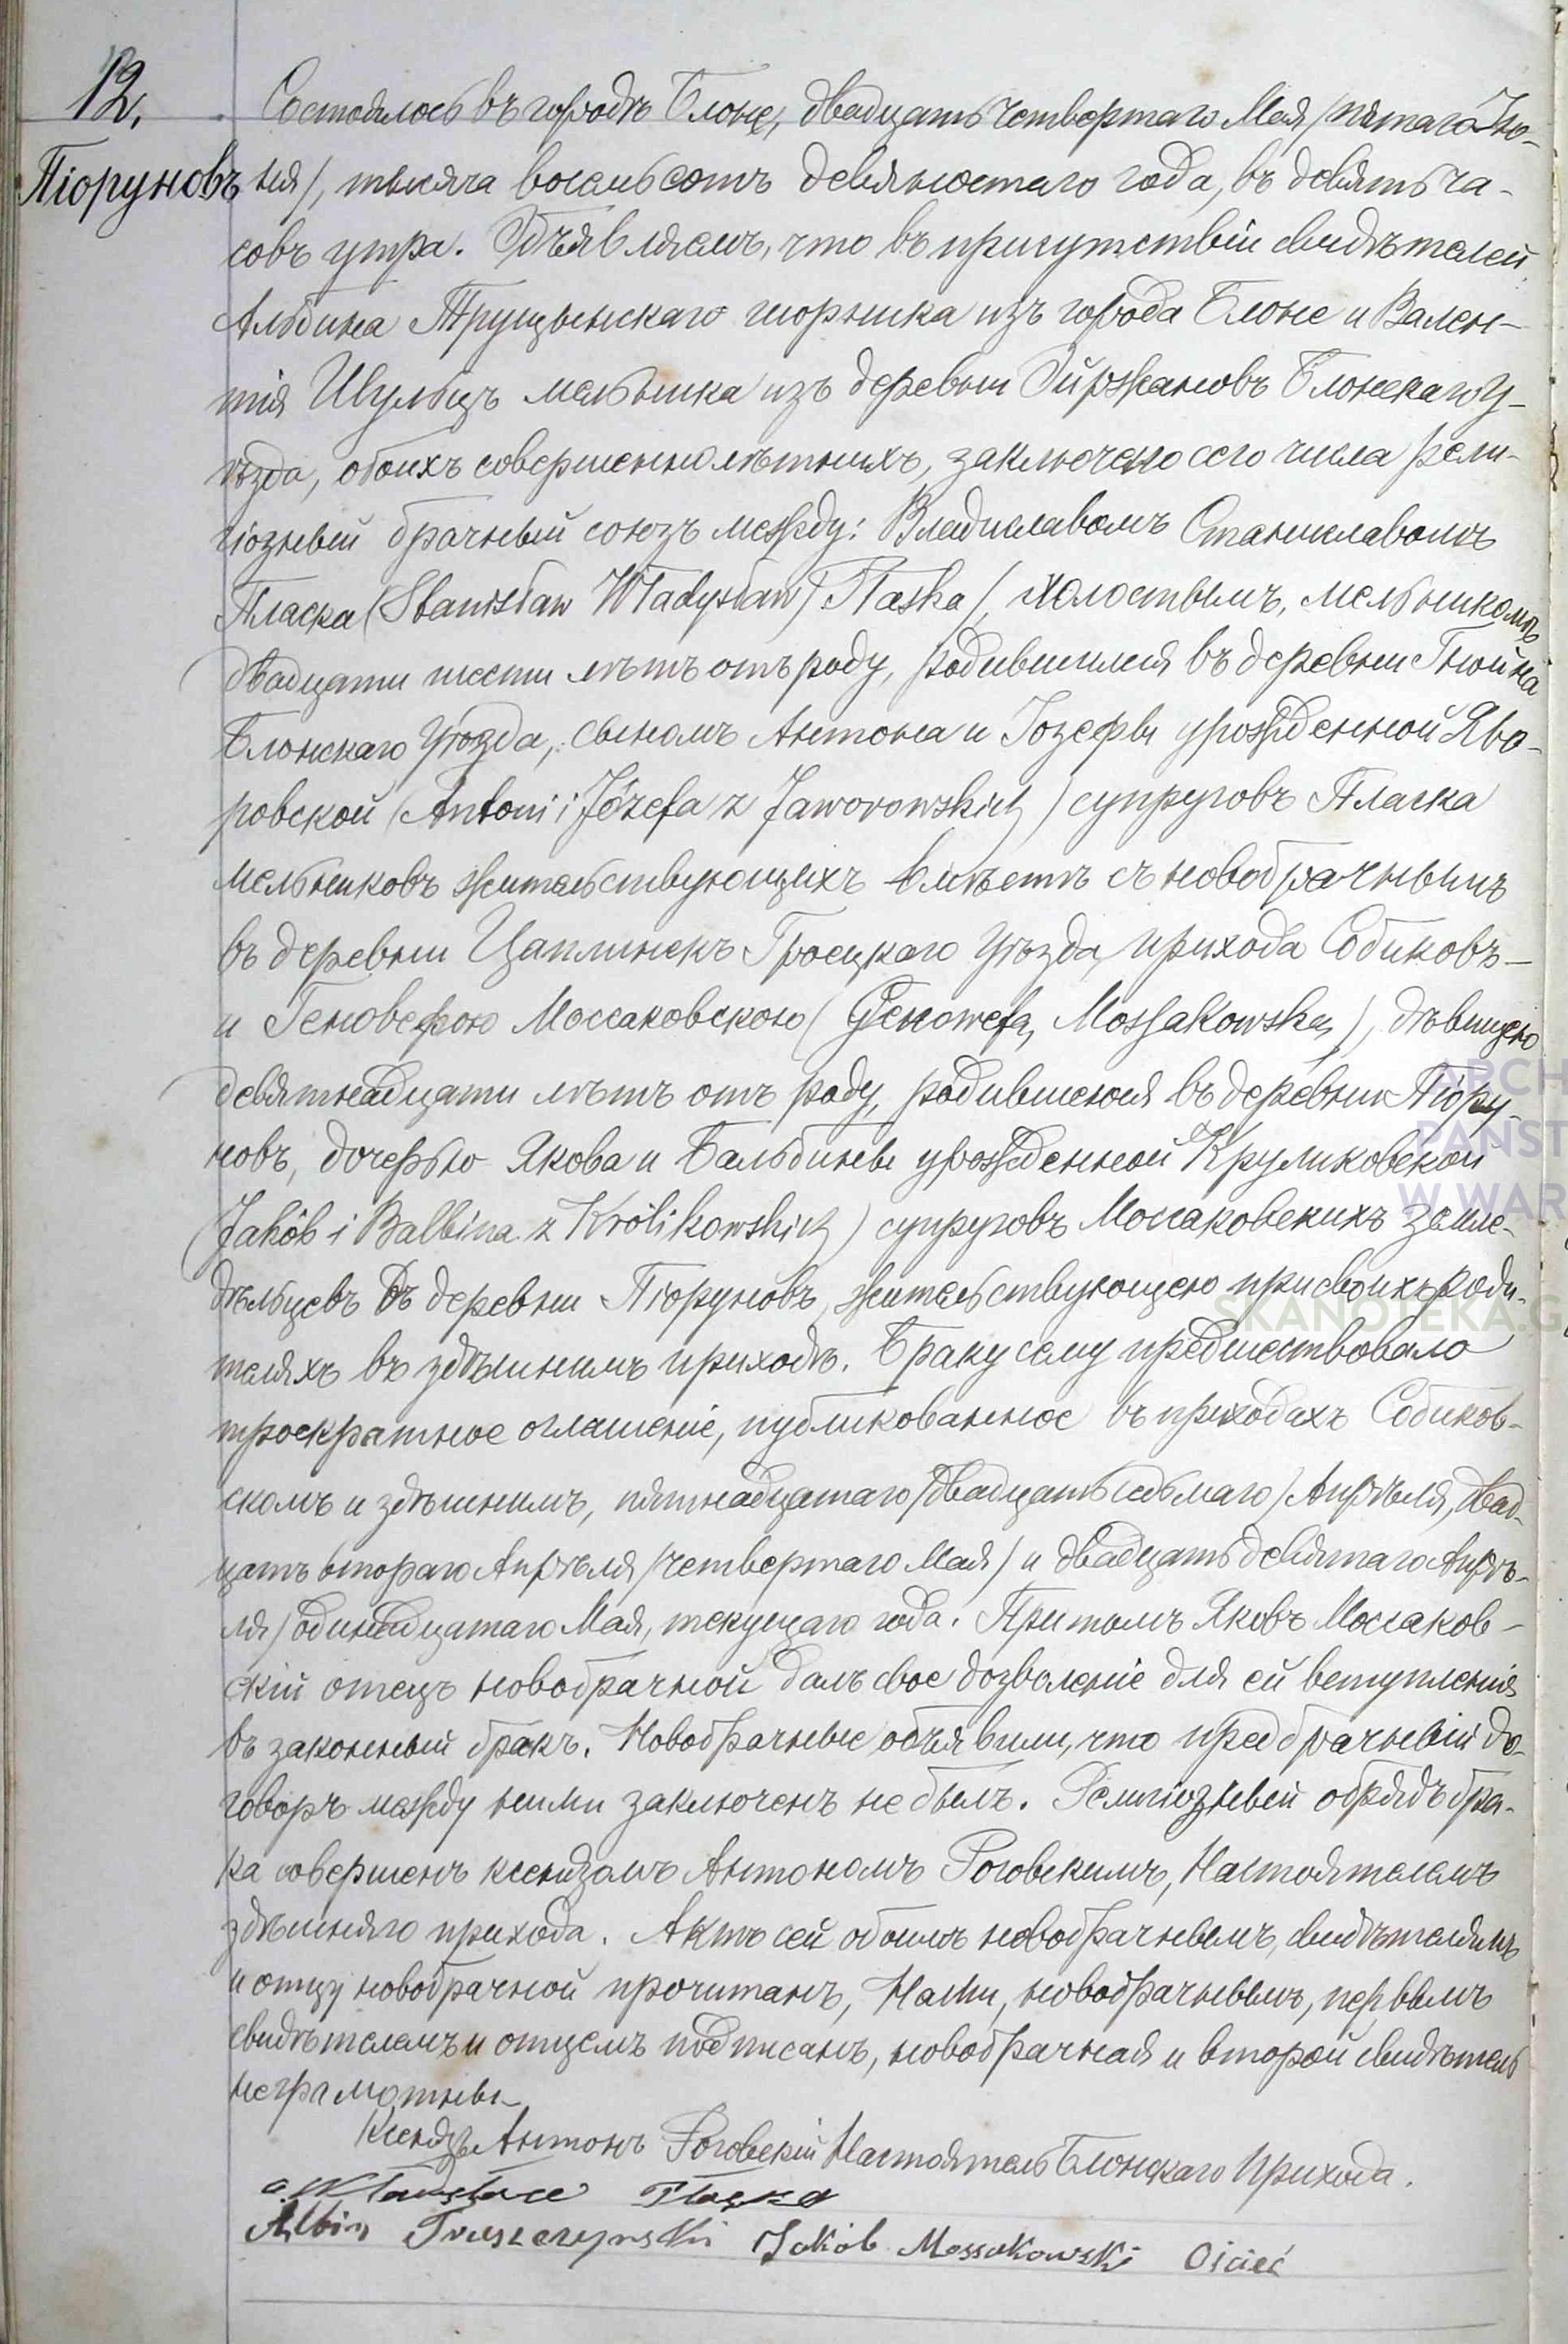 12.
Піоруновъ
Состоялось въ городѣ Блоне, двадцать четвертаго Мая /пятаго Iю-
ня/, тысяча восемьсотъ девяностаго года, въ девять ча-
совъ утра. Объявляемъ, что въ присутствіи свидѣтелей
Альбина Трущынскаго шорника изъ города Блоне и Вален-
тія Шульцъ мельника изъ деревни Ойржановъ Блонскаго У-
ѣзда, обоихъ совершеннолѣтнихъ, заключено сего числа рели-
гіозный брачный союзъ между: Владиславомъ Станиславомъ
Пласка (Stanisław Władysław) Płaska/, холостымъ, мельникомъ
двадцати шести лѣтъ отъ роду, родившимся въ деревни Гнойна
Блонскаго Уѣзда, сыномъ Антона и Іозефы урожденной Яво-
ровской (Antoni i Józefa z Jaworowskich) супруговъ Пласка
мельниковъ жительствующихъ вмѣстѣ съ новобрачнымъ
въ деревни Цаплинекъ Гроецкаго Уѣзда, прихода Собиковъ—
и Геновефою Моссаковскою (Genowefa Mossakowska), дѣвицею
девятнадцати лѣтъ отъ роду, родившеюся въ деревни Піору-
новъ, дочерью Якова и Бальбины урожденной Круликовской
(Jakób i Balbina z Królikowskich) супруговъ Моссаковскихъ земле-
дѣльцевъ въ деревни Піоруновъ, жительствующею при своихъ роди-
теляхъ въ здѣшнимъ приходѣ. Браку сему предшествовало
троекратное оглашеніе, публикованное въ приходахъ Собиков-
скомъ и здѣшнимъ, пятнадцатаго /двадцать седьмаго/ Апрѣля, двад-
цать втораго Апрѣля /четвертаго Мая/ и двадцать девятаго Апрѣ-
ля/одинадцатаго Мая, текущаго года. Притомъ Яковъ Моссаков-
скій отецъ новобрачной далъ свое дозволеніе для ей вступленія
въ законный бракъ. Новобрачные объявили, что предбрачный до-
говоръ между ними заключенъ не былъ. Религіозный обрядъ бра-
ка совершенъ ксендзомъ Антономъ Роговскимъ, Настоятелемъ
здѣшняго прихода. Актъ сей обоимъ новобрачнымъ, свидѣтелямъ
и отцу новобрачной прочитанъ, Нами, новобрачнымъ, первымъ
свидѣтелемъ и отцемъ подписанъ, новобрачная и второй свидѣтель
неграмотны—
Ксендзъ Антонъ Роговскій Настоятель Блонскаго Прихода.
Płaska
Albin Truszczynski Jakób Mossakowski Oiciec
ARCH
PAŃST
W WAR
SKANOTEKA.G